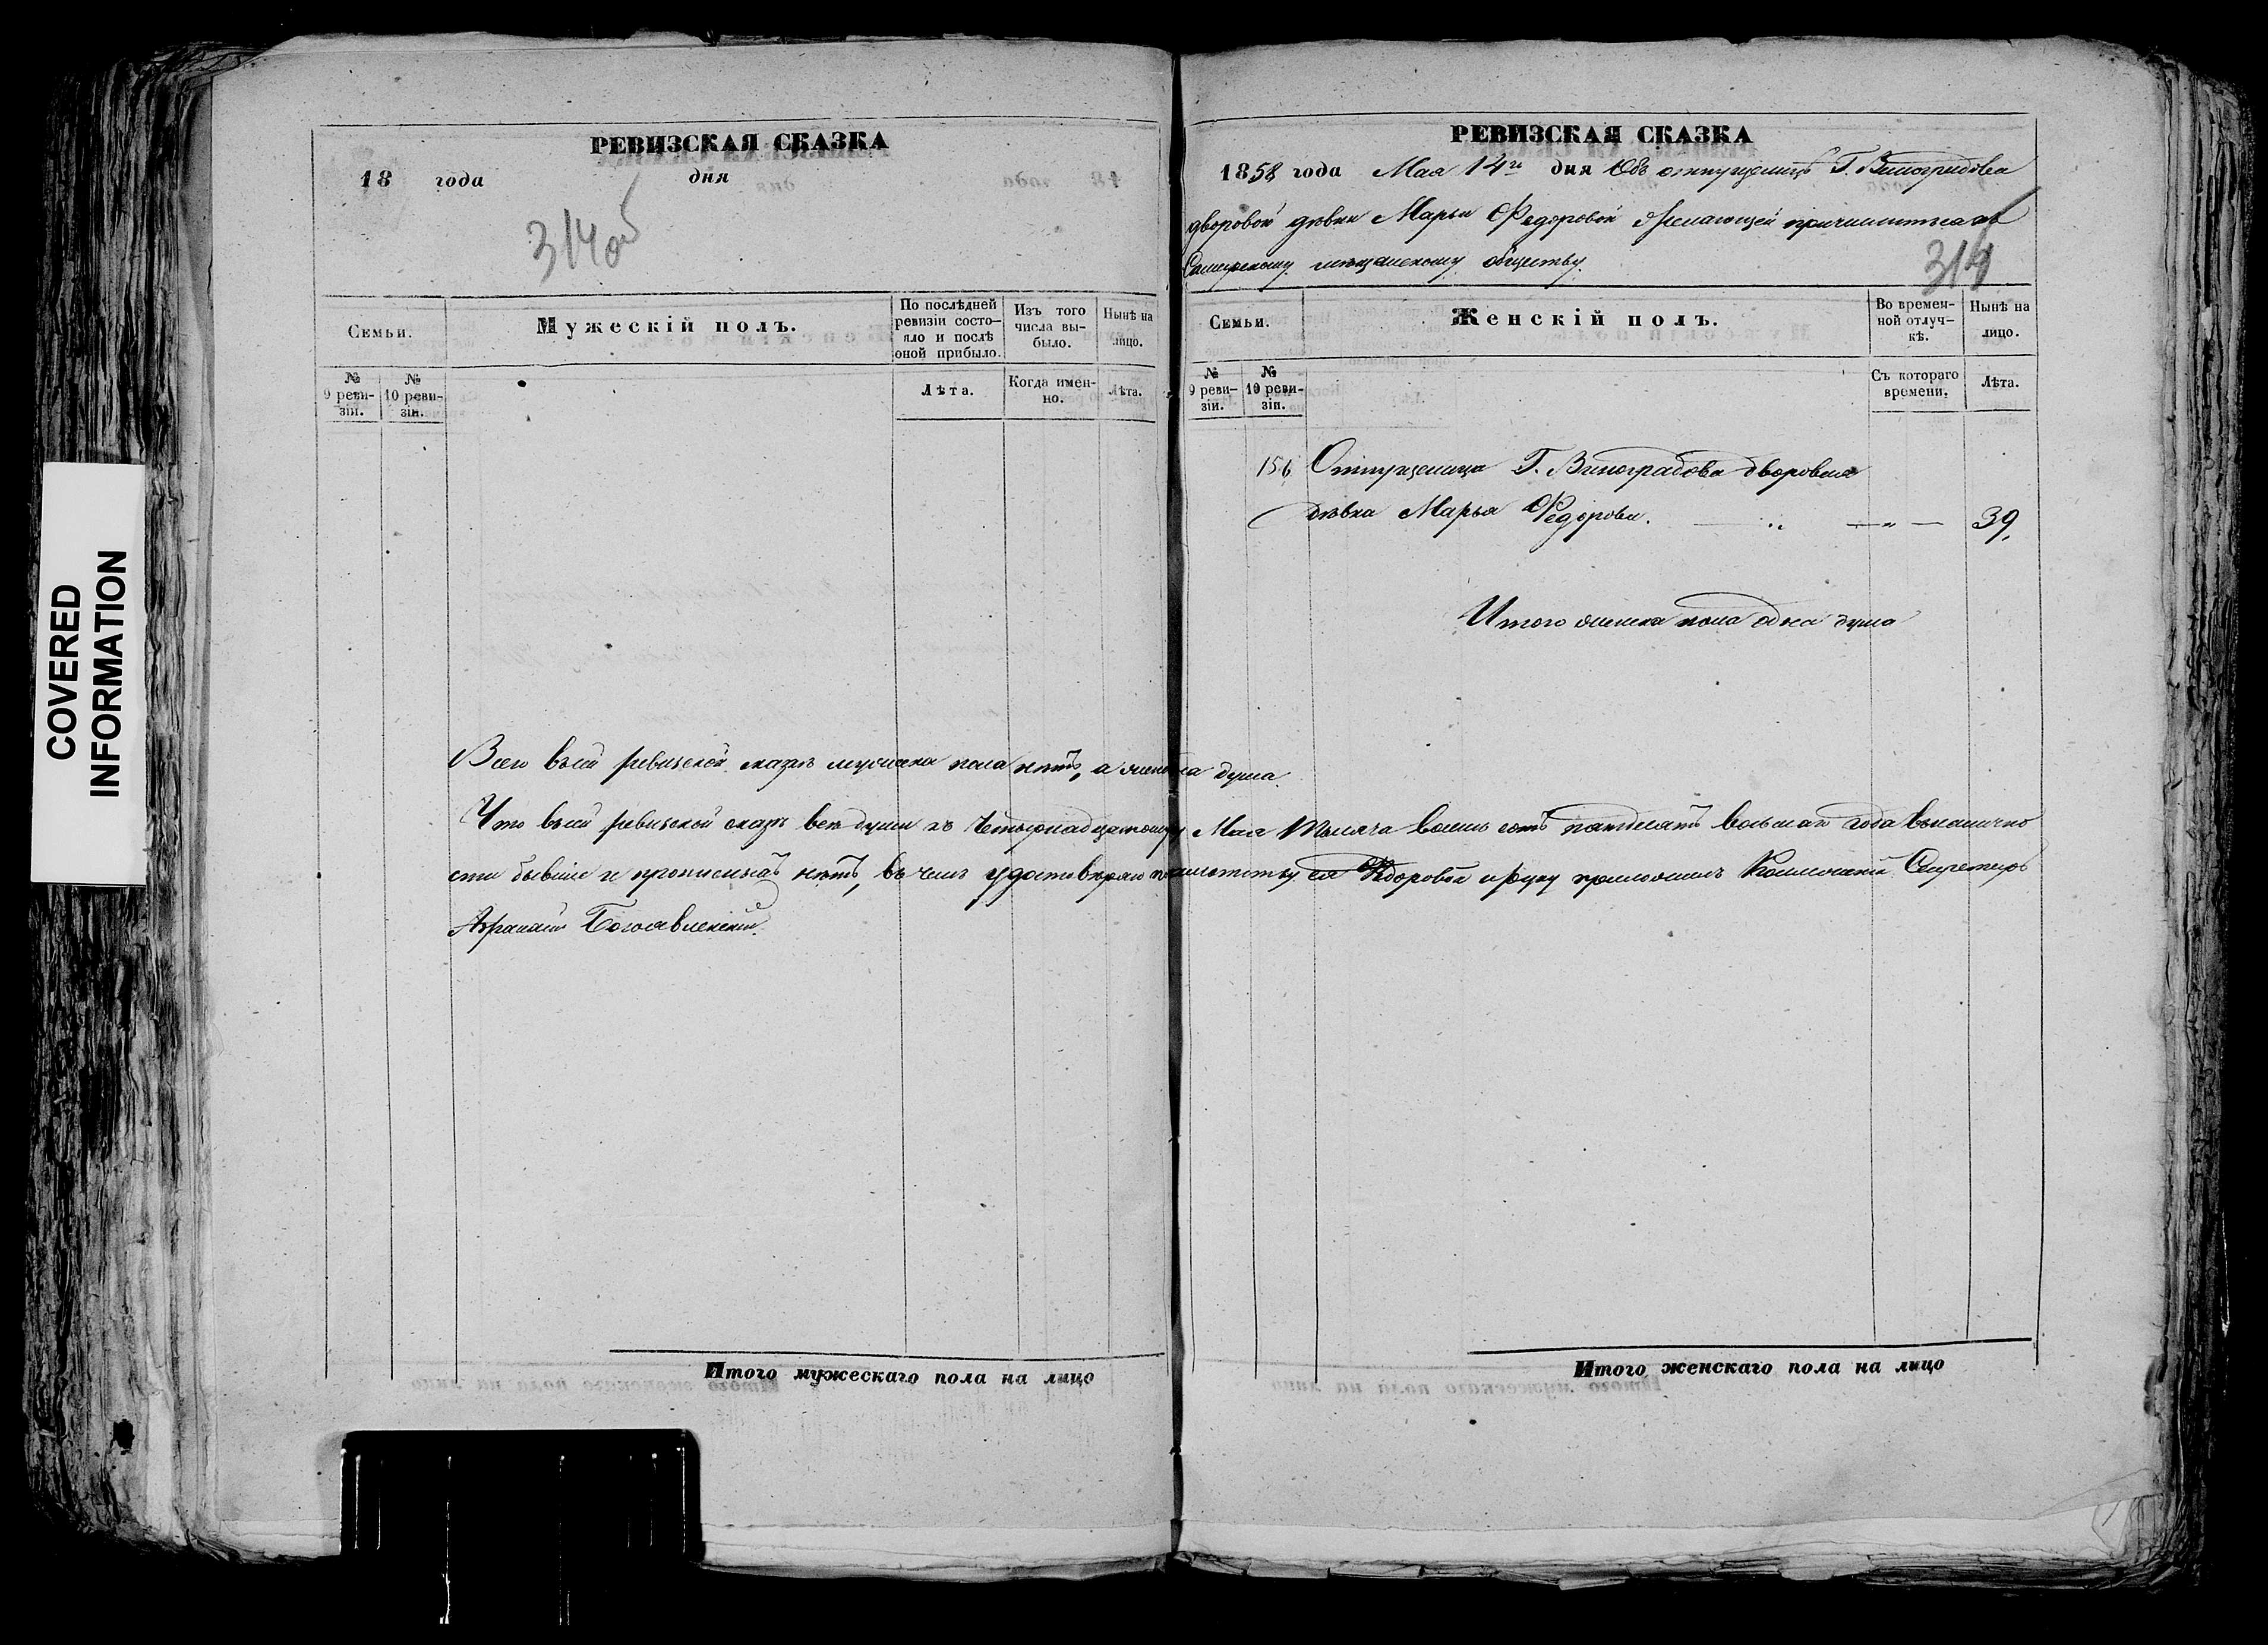 РЕВИЗСКАЯ СКАЗКА
18 года дня
314об
Семьи.
Мужескій полъ.
По послѣдней ревизіи состояло и послѣ оной прибыло.
Изъ того числа выбыло.
Нынѣ на лицо.
№ 9 ревизіи.
№ 10 ревизіи.
Лѣта.
Когда именно.
Лѣта.
РЕВИЗСКАЯ СКАЗКА
1858 года Мая 14го дня Объ отпущениц Г. Виноградова
дворовой дѣвки Марьи Федоровой желающей причислиться къ
Самарскому мѣщанскому обществу.
314
Семьи.
Женскій полъ.
Во временной отлучкѣ.
Нынѣ на лицо.
№ 9 ревизіи.
№ 10 ревизіи.
Съ котораго времени.
Лѣта.
156 Отпущеница Г. Виноградова дворовая
дѣвка Марья Федорова. — „ — „ — 39,
Итого женска пола одна душа
Всего въсей ревизской сказкѣ мужска пола нѣтъ, а женска душа.
Что въсей ревизской сказкѣ всѣ души къ Четырнадцатому Мая Тысяча восемь сотъ пятдесятъ восьмаго года въналично
сти бывшіе и прописныхъ нѣтъ, въ чемъ удостовѣряю Федоровой и руку приложилъ Секретарь
Богоявленскій.
Итого мужескаго пола на лицо
Итого женскаго пола на лицо
COVERED
INFORMATION